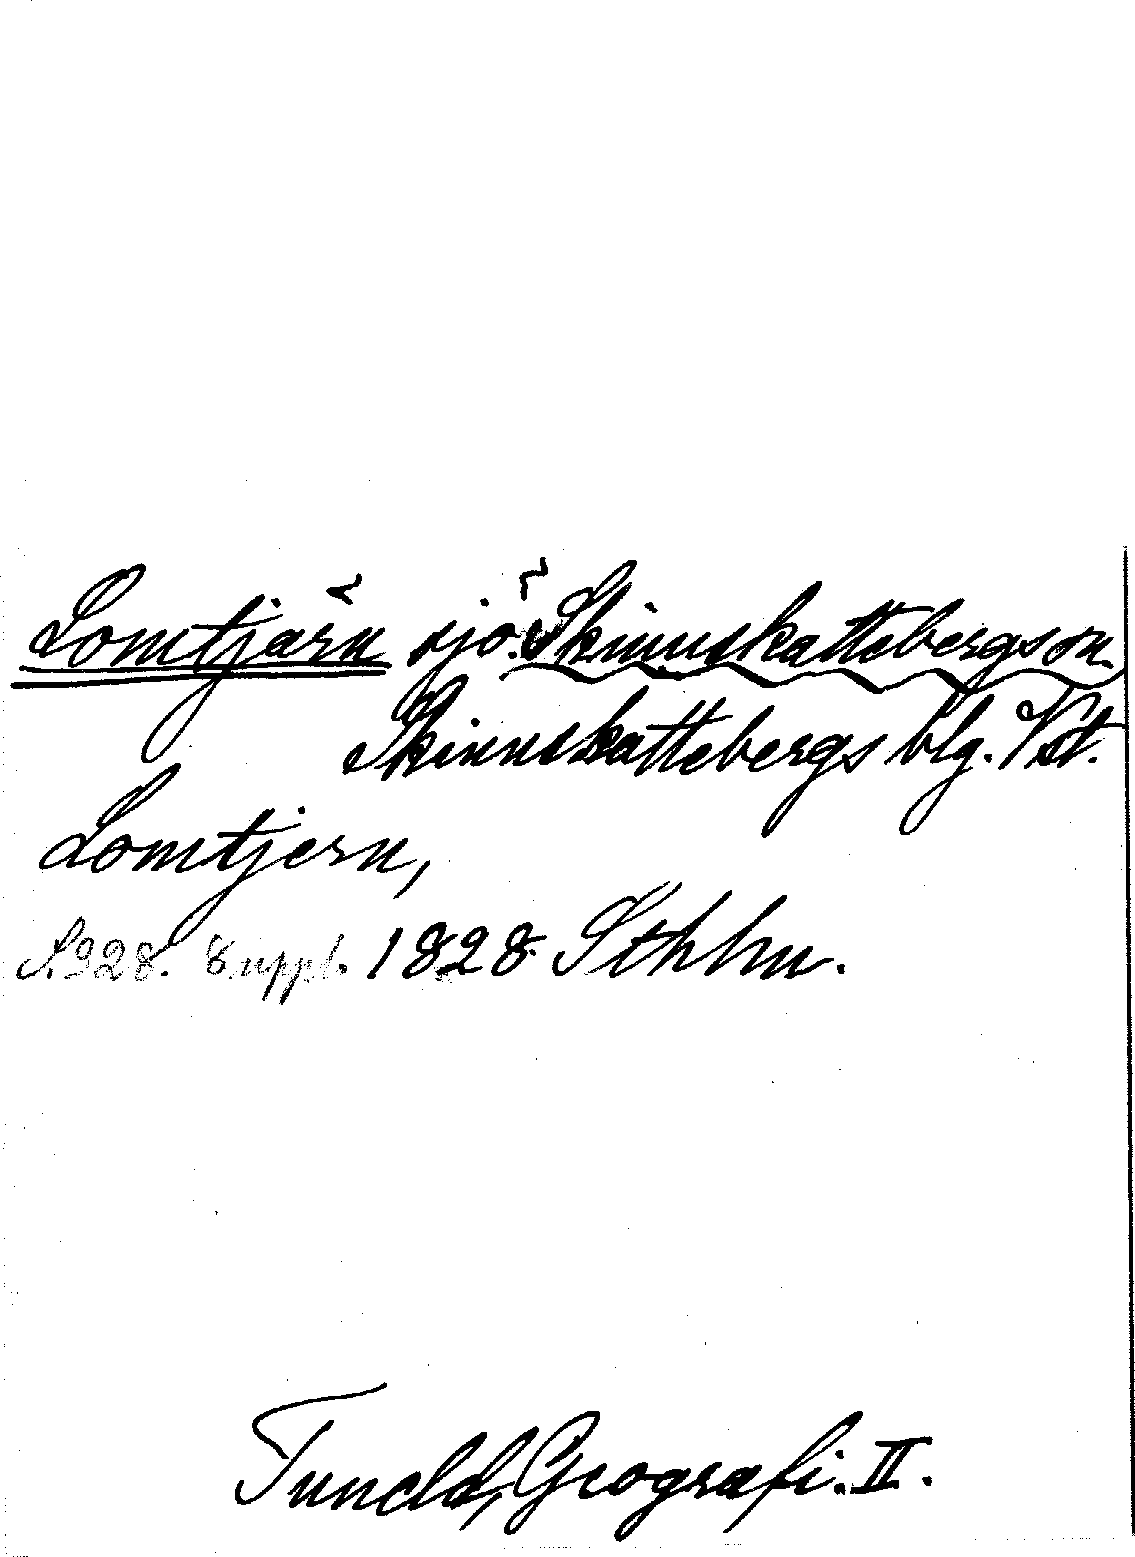 Lomtjärn sjö. Skinnskattebergs sn.
Skinnskattebergs blg. Vstm.
Lomtjern,
S. 928. 8 uppl. 1828 Sthlm.
Tuneld, Geografi. II.